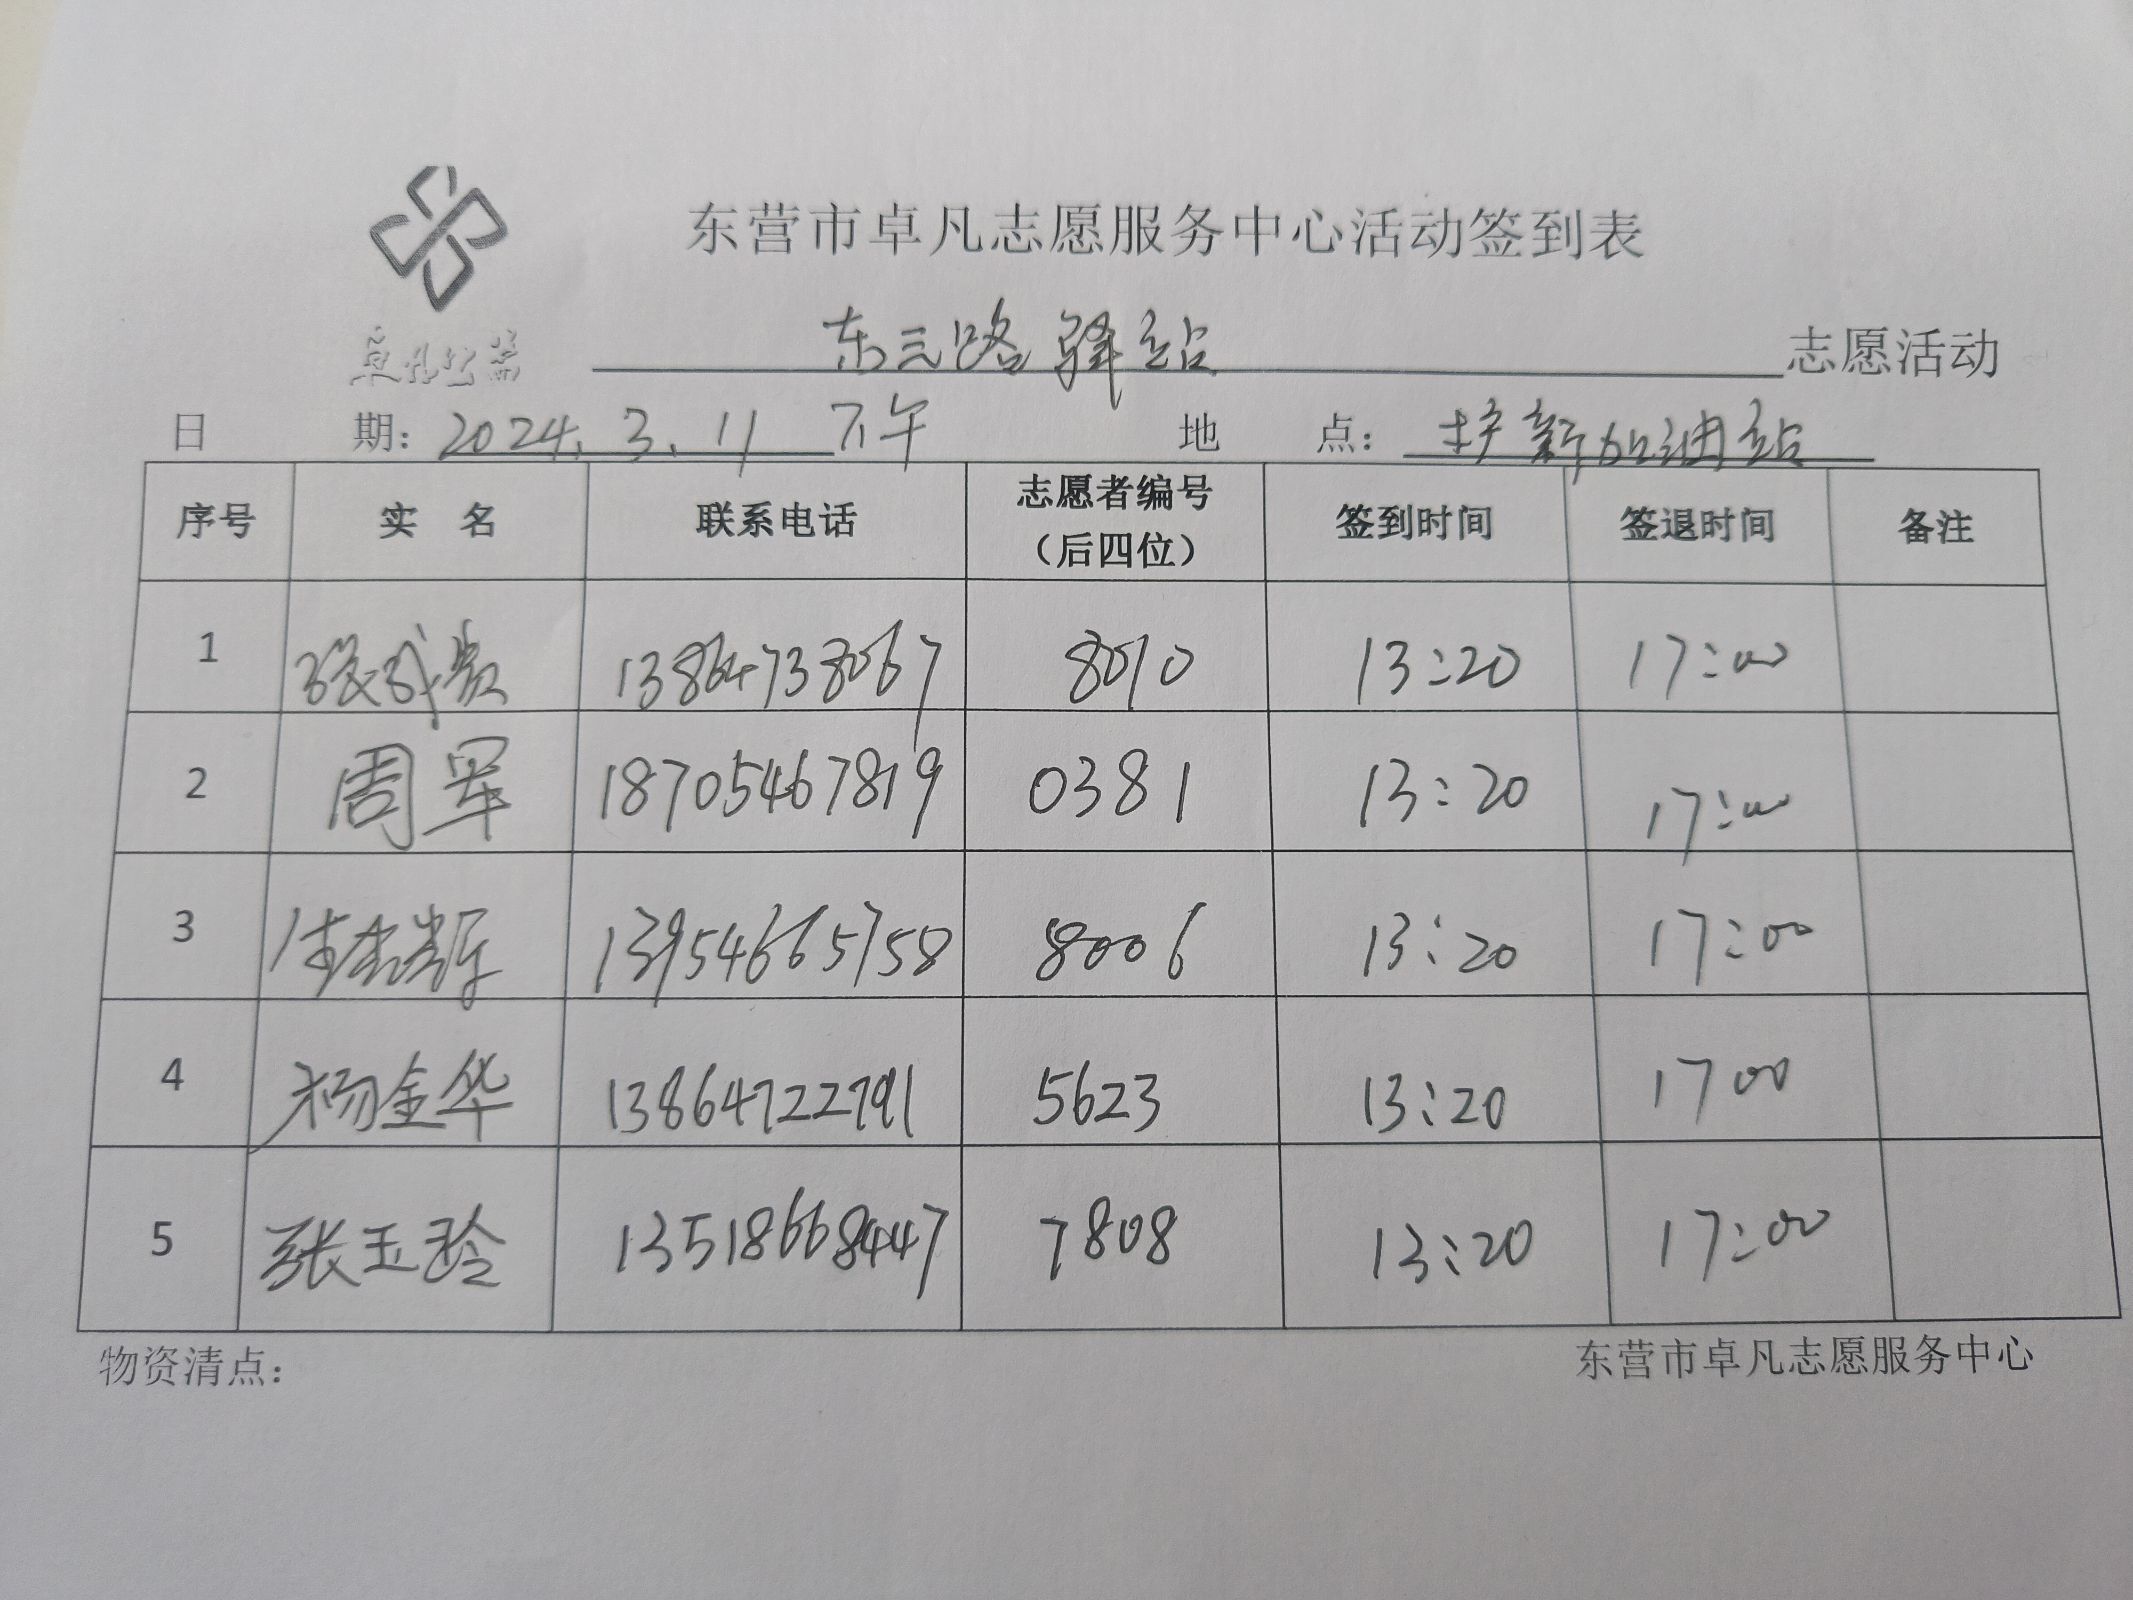 东营市卓凡志愿服务中心活动签到表
卓凡公益
东三路驿站 志愿活动
日 期：2024.3.11 下午 地 点：护新加油站
序号 实 名 联系电话 志愿者编号（后四位） 签到时间 签退时间 备注
1 张成贵 13864738067 8010 13:20 17:00
2 周军 18705467819 0381 13:20 17:00
3 13954665758 8006 13:20 17:00
4 杨金华 13864722791 5623 13:20 1700
5 张玉玲 13518668447 7808 13:20 17:00
物资清点： 东营市卓凡志愿服务中心